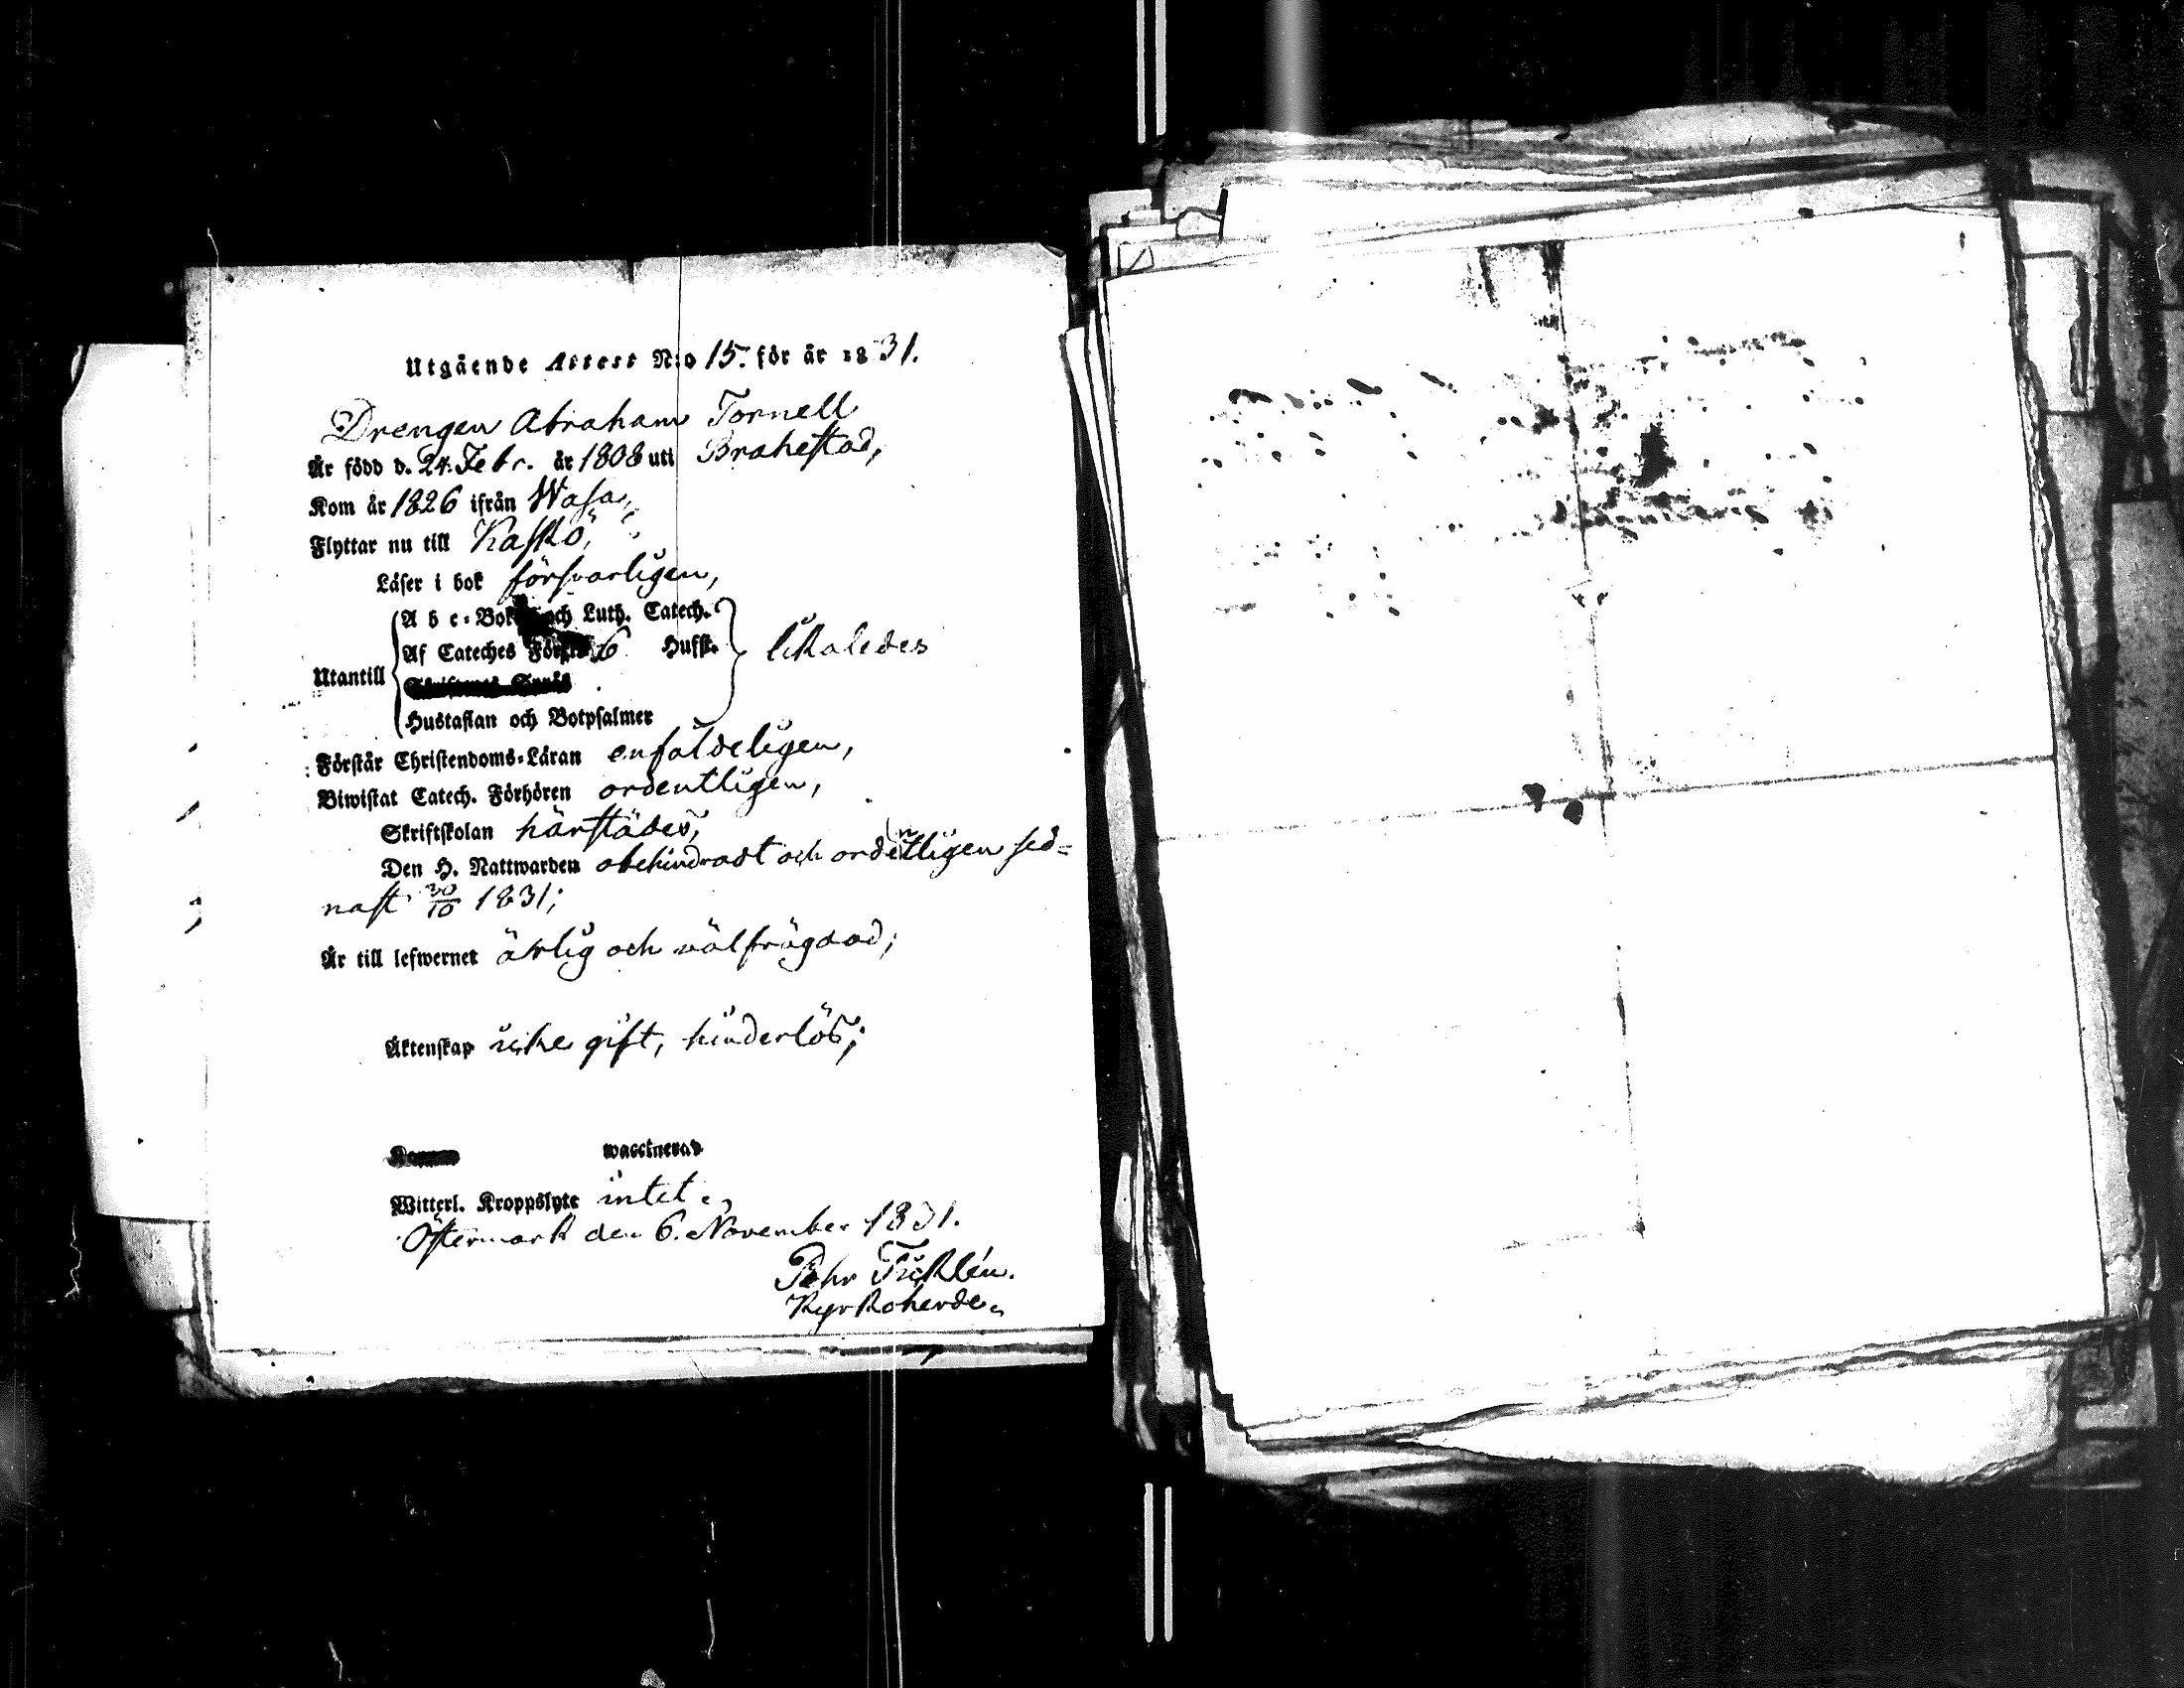 Utgående Attest N:o 15. för år 1831.
Drengen Abraham Tornell
Är född d. 24. Febr. år 1808 uti Brahestad,
Kom år 1826 ifrån Wasa,
Flyttar nu till Kaskö,
Läser i bok försvarligen,
A b c-Bok och Luth. Catech.
Af Cateches Förste 6 Hufst. likaledes
Utantill
Hustaflan och Botpsalmer
Förstår Christendoms-Läran enfaldeligen,
Biwistat Catech. Förhören ordentligen,
Skriftskolan härstädes,
Den H. Nattwarden obehindradt och ordentligen sed=
nast 30/10 1831;
Är till lefwernet ärlig och välfrägdad;
Äktenskap icke gift, hinderlös;
waccinerad
Witterl. Kroppslyte intet.
Östermark den 6. November 1831.
Pehr Ticklén.
Kyrkoherde.